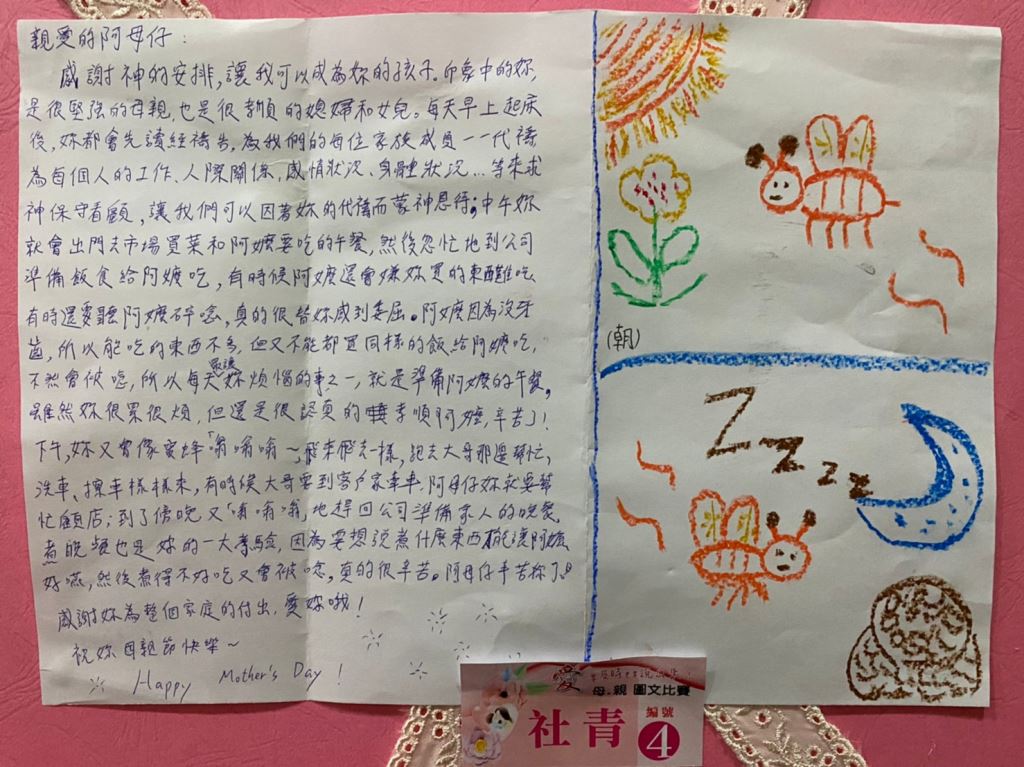 親愛的阿母仔：
感謝神的安排，讓我可以成為妳的孩子。印象中的妳，
是很堅強的母親，也是很孝順的媳婦和女兒。每天早上起床
後，妳都會先讀經禱告，為我們的每位家族成員一一代禱
為每個人的工作、人際關係、感情狀況、身體狀況…等來求
神保守看顧，讓我們可以因著妳的代禱而蒙神恩待；中午妳
就會出門去市場買菜和阿嬤要吃的午餐，然後匆忙地到公司
準備飯食給阿嬤吃，有時候阿嬤還會嫌妳買的東西難吃
有時還要聽阿嬤碎唸，真的很替妳感到委屈。阿嬤因為沒牙
齒，所以能吃的東西不多，但又不能都買同樣的飯給阿嬤吃，
不然會被唸，所以每天最讓妳煩惱的事之一，就是準備阿嬤的午餐。
雖然妳很累很煩，但還是很認真的孝順阿嬤，辛苦了！
下午，妳又會像蜜蜂「嗡嗡嗡～飛來飛去一樣，跑去大哥那邊幫忙，
洗車、擦車樣樣來，有時候大哥要到客戶家牽車，阿母仔妳就要幫
忙顧店；到了傍晚又「嗡嗡嗡」地趕回公司準備家人的晚餐，
煮晚頓也是妳的一大考驗，因為要想說煮什麼東西才能讓阿嬤
好嚥，然後煮得不好吃又會被唸，真的很辛苦。阿母仔辛苦你了。
感謝妳為整個家庭的付出，愛妳哦！
祝妳母親節快樂～
Happy Mother's Day !
(朝)
Zzzzz
愛
母．親 圖文比賽
社青
編號
4